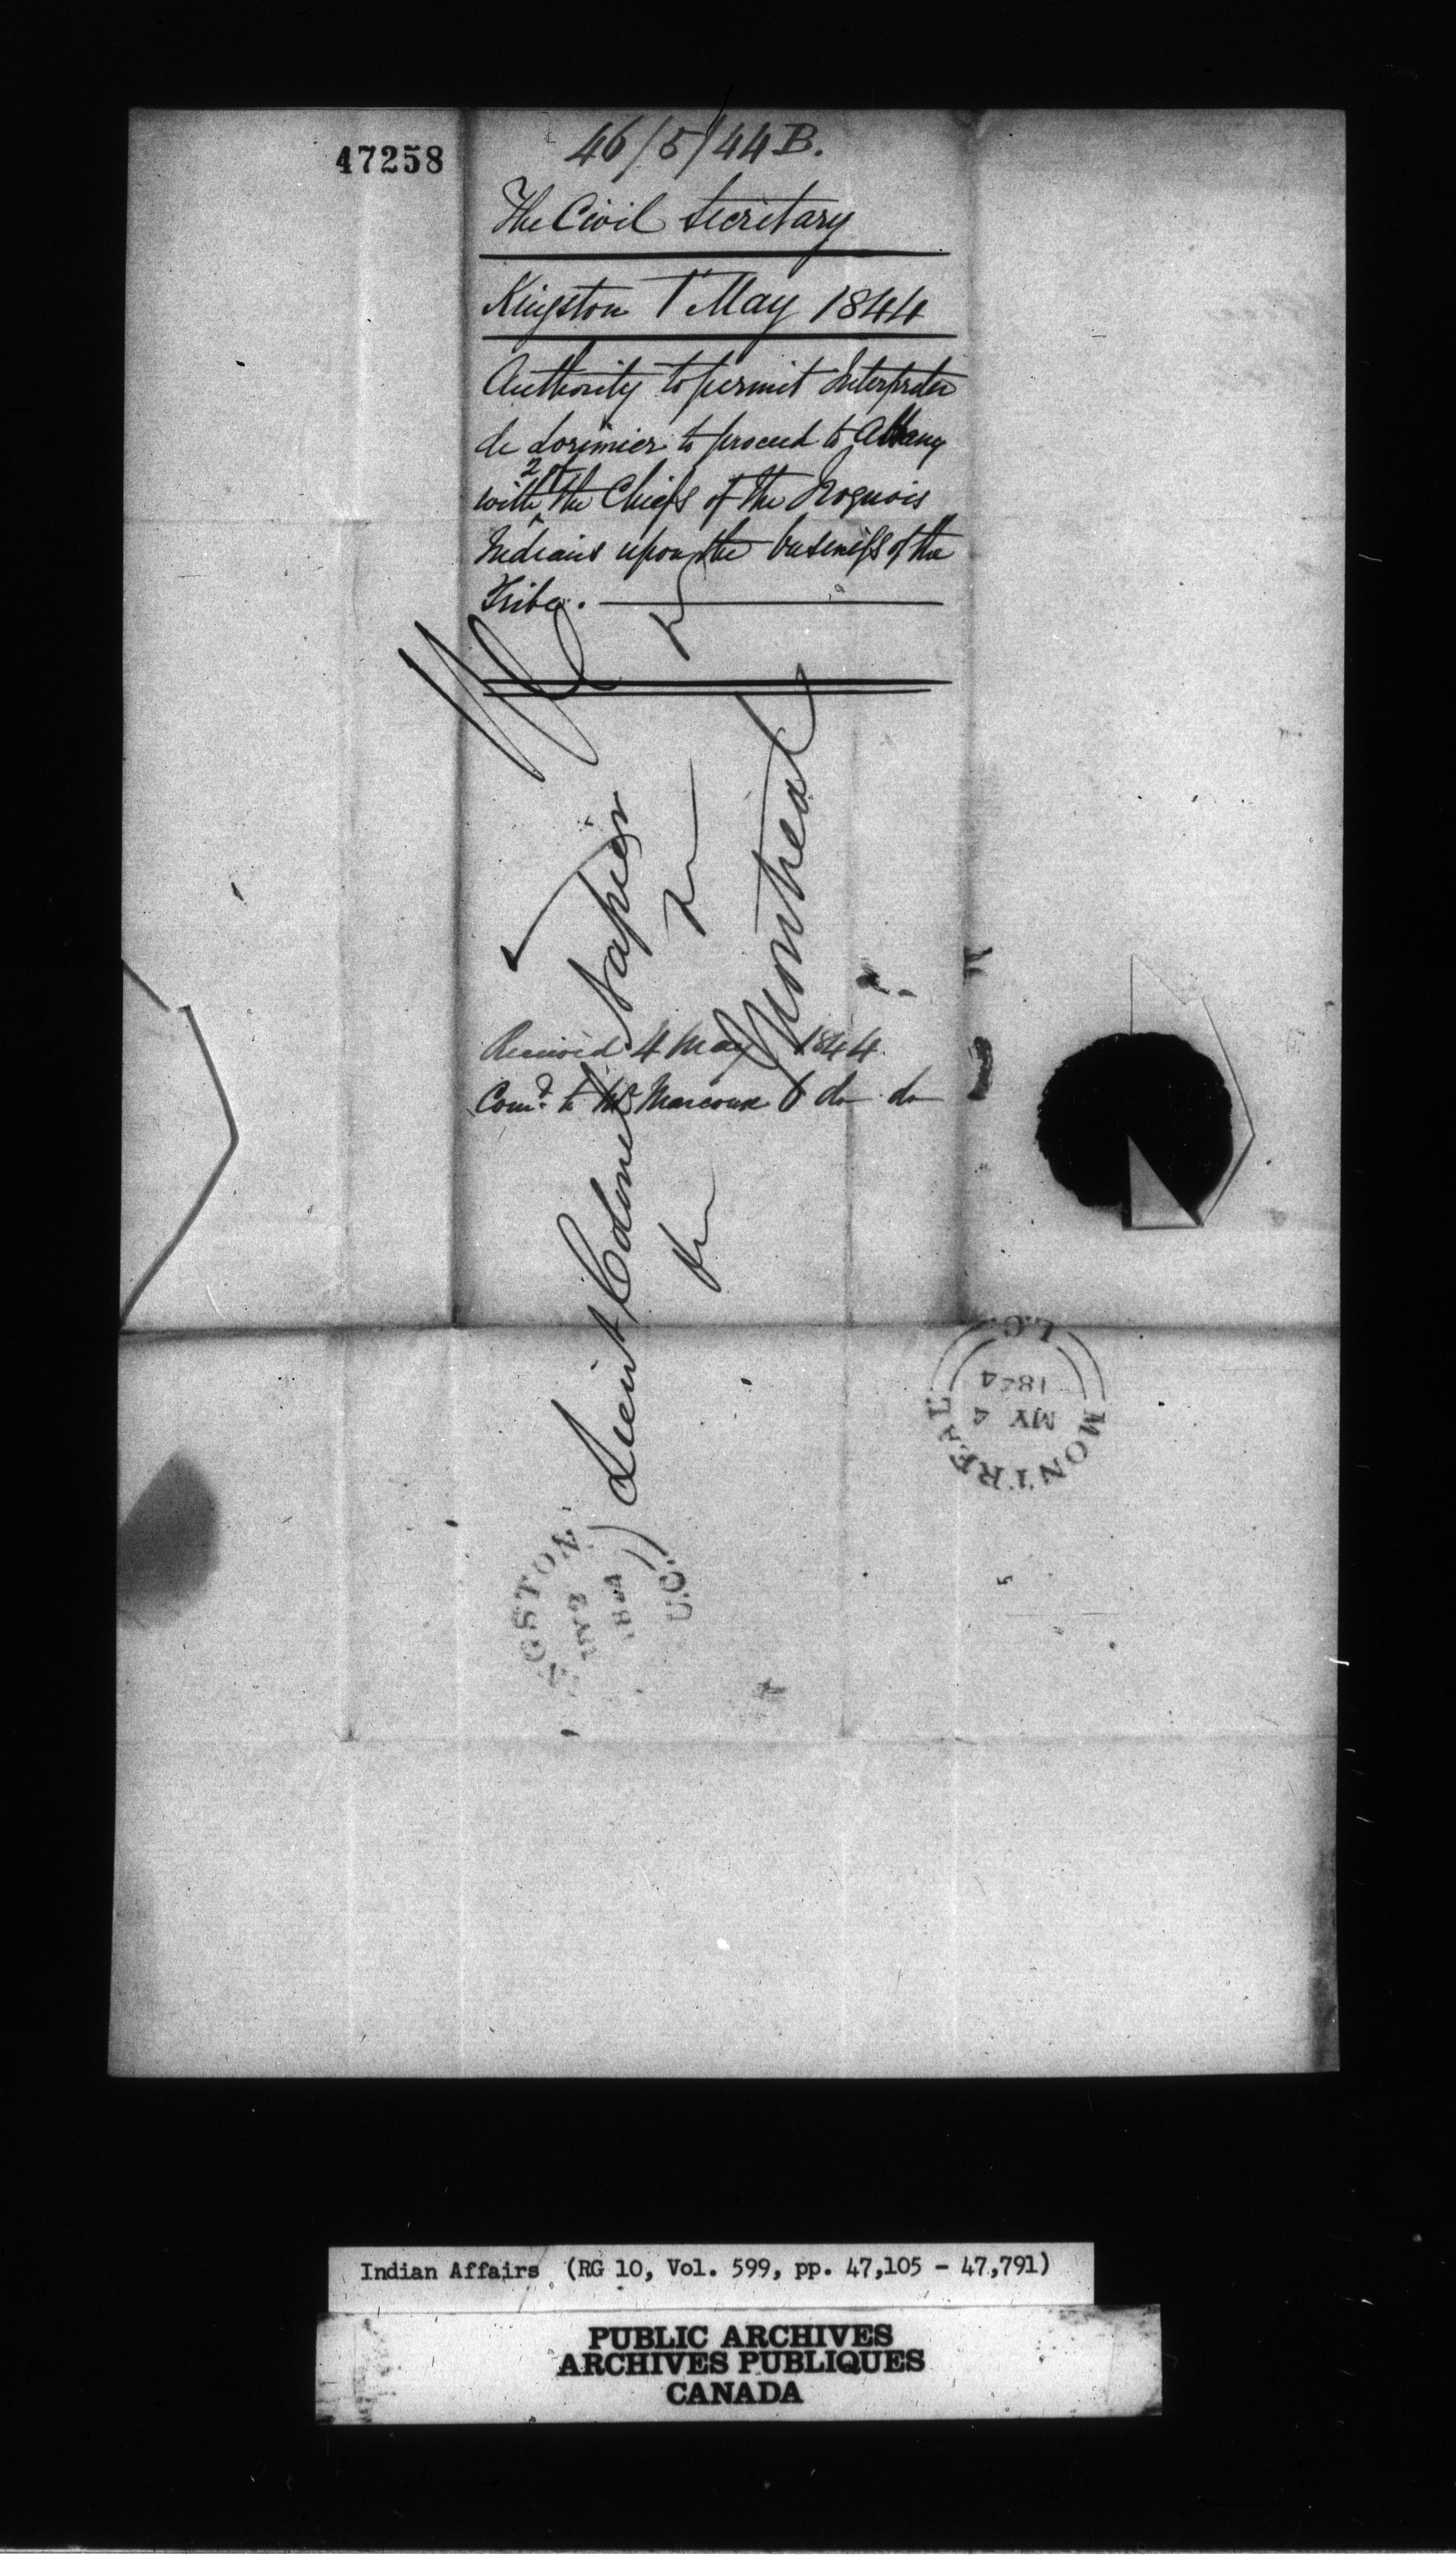 47258
46/5/44 B.
The Civil Secretary
Kingston 1st May 1844
Authority to permit Interpreter
de Lorimier to proceed to Albany
with 2 of the Chiefs of the Iroquois
Indians upon the business of the
Tribe.
Lieut Colonel Napier
Montreal
Received 4 May 1844
Comd. to Mr Marcoux 6 do do
MONTREAL
MY 4
1844
L.C.
NGSTON
MY 2
1844
U.C.
Indian Affairs (RG 10, Vol. 599, pp. 47,105 - 47,791)
PUBLIC ARCHIVES
ARCHIVES PUBLIQUES
CANADA